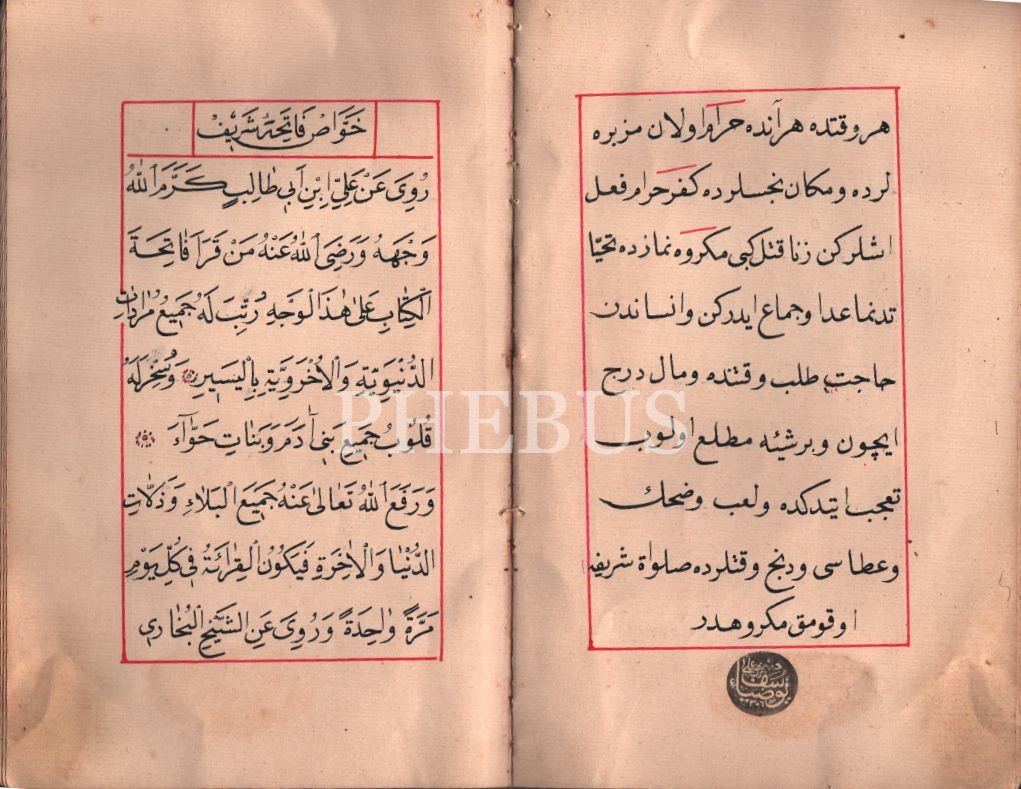 هر وقتده هر آنده حرام اولان مزبره
لرده و مكان نجسلرده كفر حرام فعل
اشلركن زنا قتل كبى مكروه نمازده تحيّا
تدنماعدا و جماع ايدركن و انساندن
حاجت طلب وقتنده و مال درج
ايچون و برشيئه مطلع اولوب
تعجب ايتدكده و لعب و ضحك
و عطاسى و دبح وقتلرده صلواة شريفه
اوقومق مكروهدر
خَوَّاصِ فَاتِحَهٔ شَرِيف
رُوِىَ عَنْ عَلِيِّ ابْنِ اَبِى طَالِبٍ كَرَّمَ اللهُ
وَجْهَهُ وَرَضِىَ اللهُ عَنْهُ مَنْ قَرَأَ فَاتِحَةَ
الْكِتَابِ عَلَى هٰذَا الْوَجْهِ رُتِّبَ لَهُ جَمِيعُ مُرَادَاتِ
الدُّنْيَوِيَّةِ وَالْاُخْرَوِيَّةِ بِالْيَسِيرِ وَسُخِّرَ لَهُ
قُلُوبُ جَمِيعِ بَنِى اٰدَمَ وَبَنَاتِ حَوَّاءَ
وَرَفَعَ اللهُ تَعَالٰى عَنْهُ جَمِيعَ الْبَلَاءِ وَذِلَّاتِ
الدُّنْيَا وَالْاٰخِرَةِ فَيَكُونُ الْقِرَائَةُ فِى كُلِّ يَوْمٍ
مَرَّةً وَاحِدَةً وَرُوِىَ عَنِ الشَّيْخِ الْبُخَارِى
PHEBUS